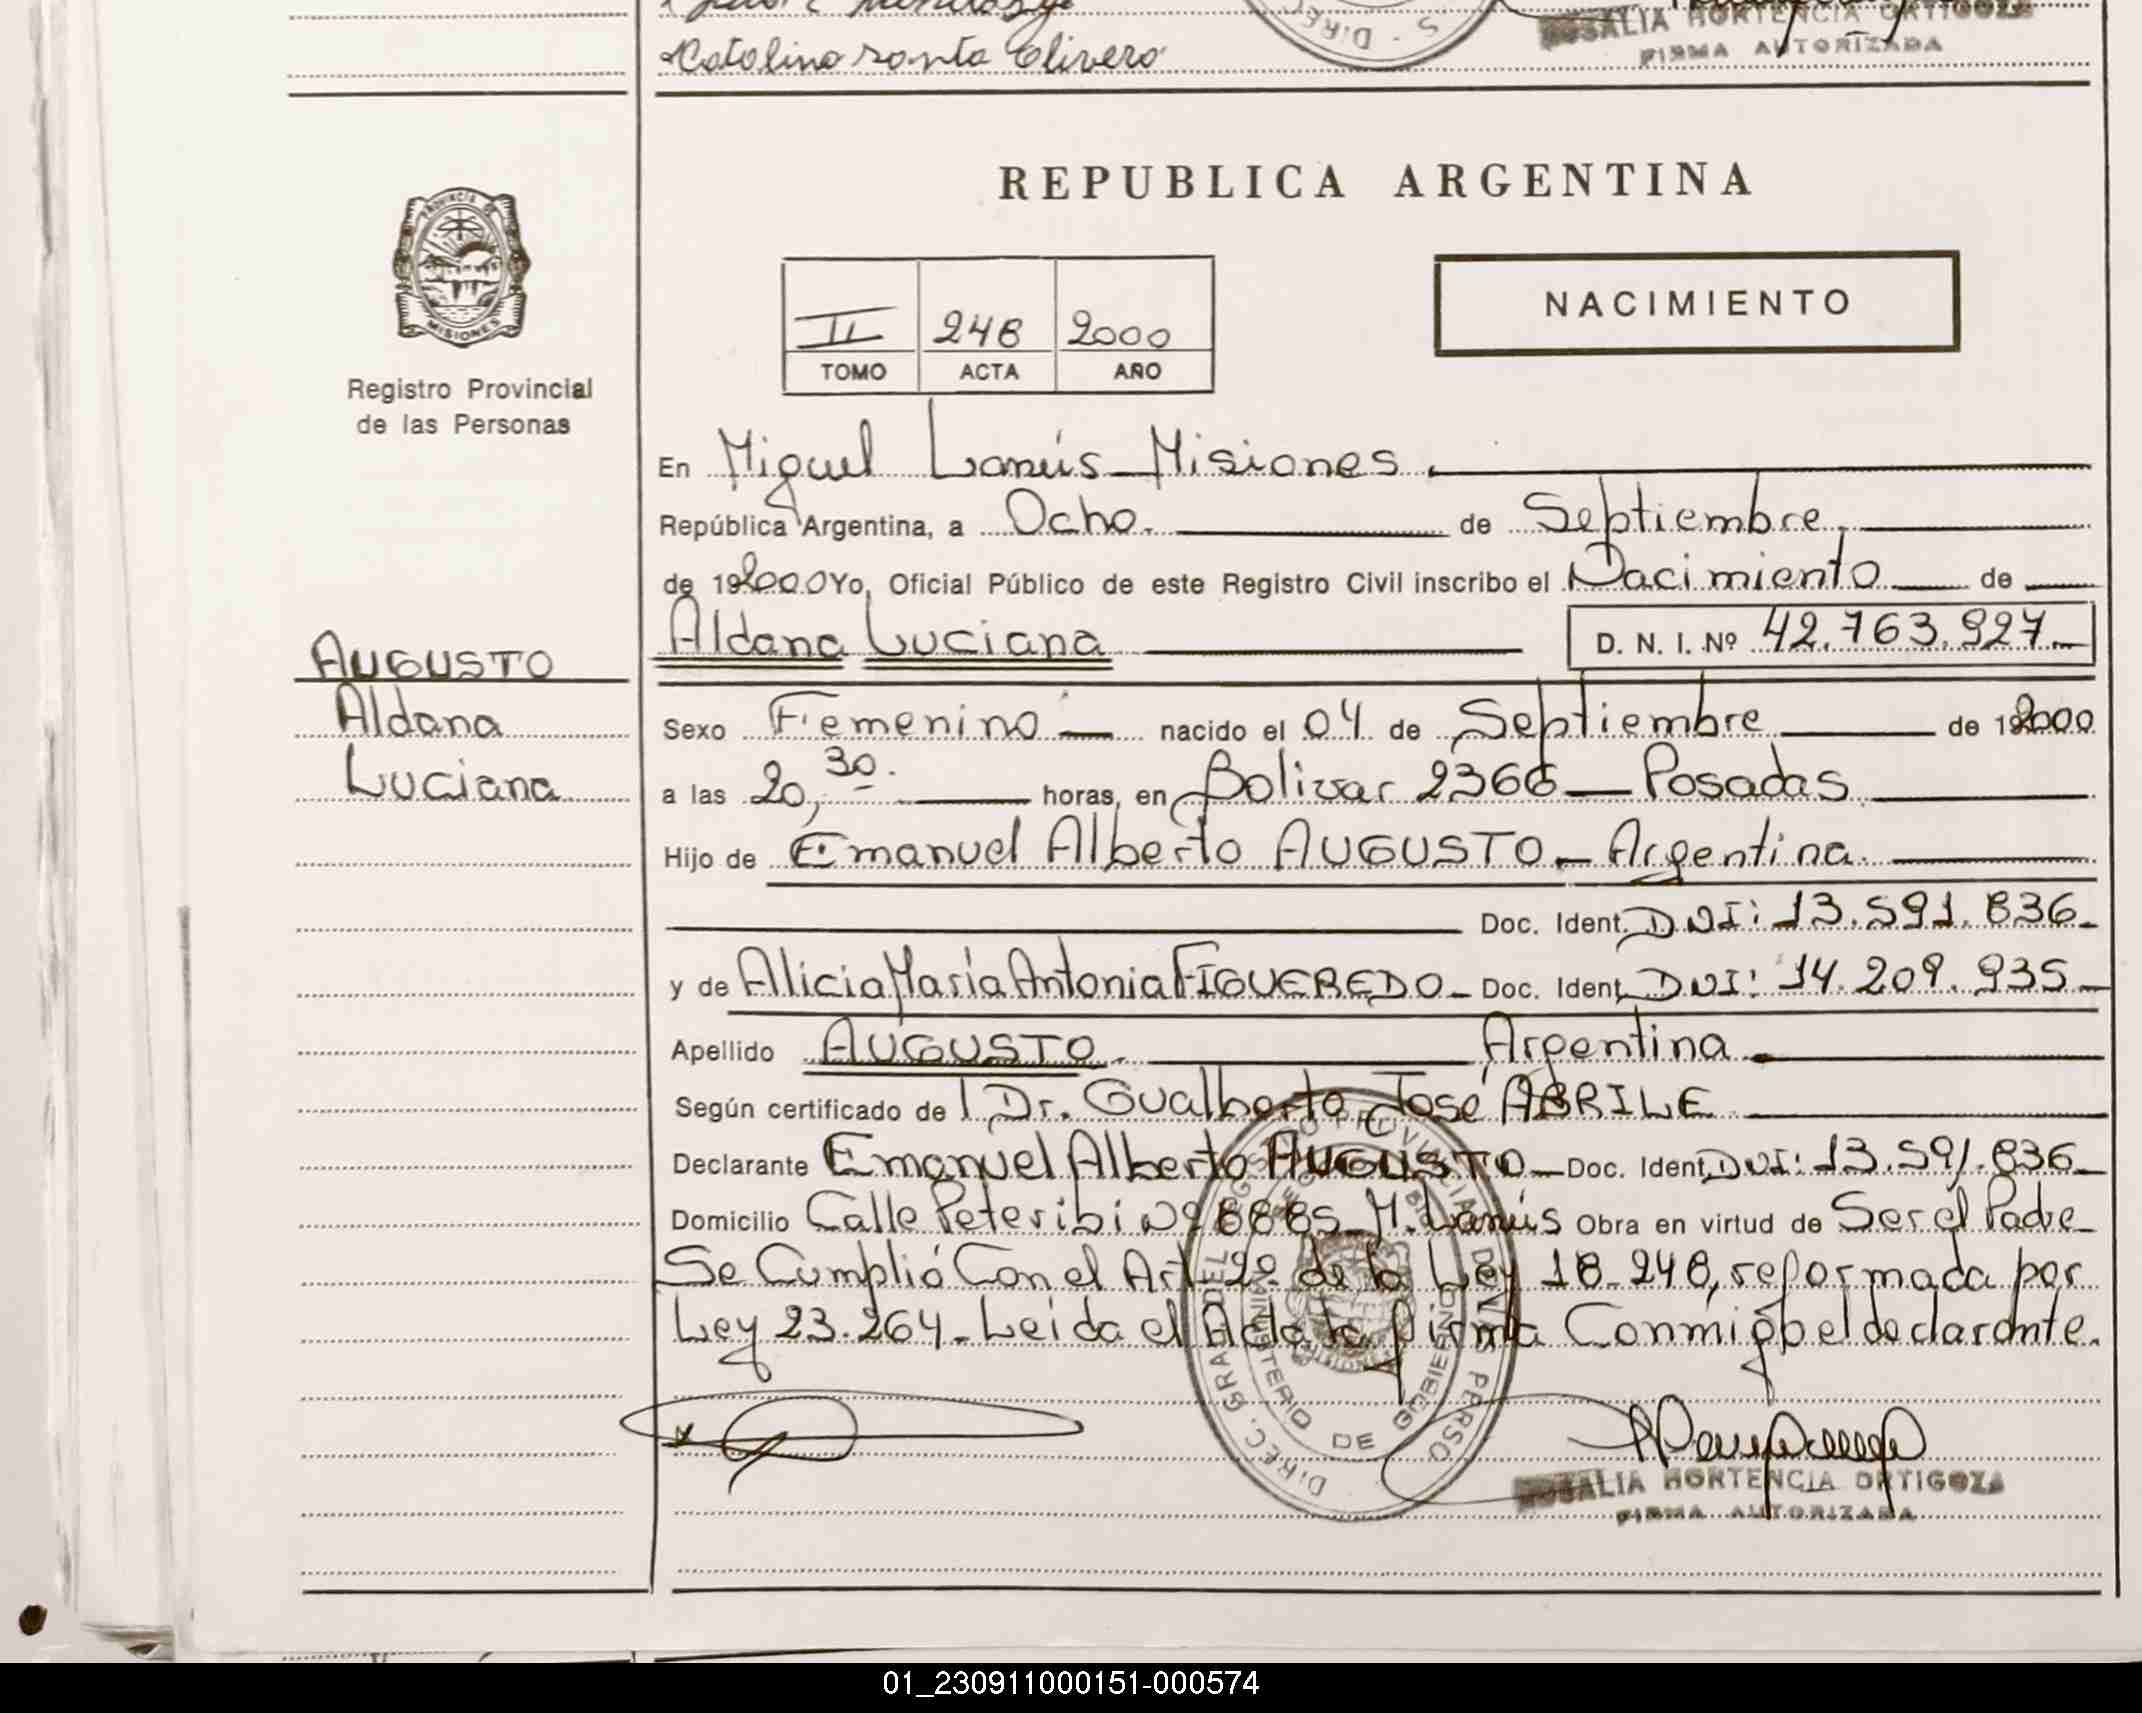 Catalino Santo Olivero
ROSALIA HORTENCIA ORTIGOZA
FIRMA AUTORIZADA
S - DIREC
PROVINCIA DE
MISIONES
Registro Provincial
de las Personas
REPUBLICA ARGENTINA
II 248 2000
TOMO ACTA AÑO
NACIMIENTO
En Miguel Lanús - Misiones.
República Argentina, a Ocho. de Septiembre.
de 192000 Yo, Oficial Público de este Registro Civil inscribo el Nacimiento de
Aldana Luciana D. N. I. Nº 42.763.927.
AUGUSTO
Aldana
Luciana
Sexo Femenino nacido el 04 de Septiembre de 192000
a las 20,30. horas, en Bolivar 2366 - Posadas.
Hijo de Emanuel Alberto AUGUSTO - Argentina.
Doc. Ident. DNI: 13.591.836-
y de Alicia María Antonia FIGUEREDO - Doc. Ident. DNI: 14.209.935-
Apellido AUGUSTO. Argentina.
Según certificado de Dr. Gualberto José ABRILE
Declarante Emanuel Alberto AUGUSTO - Doc. Ident. DNI: 13.591.836-
Domicilio Calle Peteribi Nº 8885 - M. Lanús Obra en virtud de Ser el Padre
Se Cumplió Con el Art. 2º de la Ley 18.248, reformada por
Ley 23.264 - Leida el Acta la firma Conmigo el declarante.
DIREC. GRAL. DEL REGISTRO PROVINCIAL DE LAS PERSO
MINISTERIO DE GOBIERNO
ROSALIA HORTENCIA ORTIGOZA
FIRMA AUTORIZADA
01_230911000151-000574